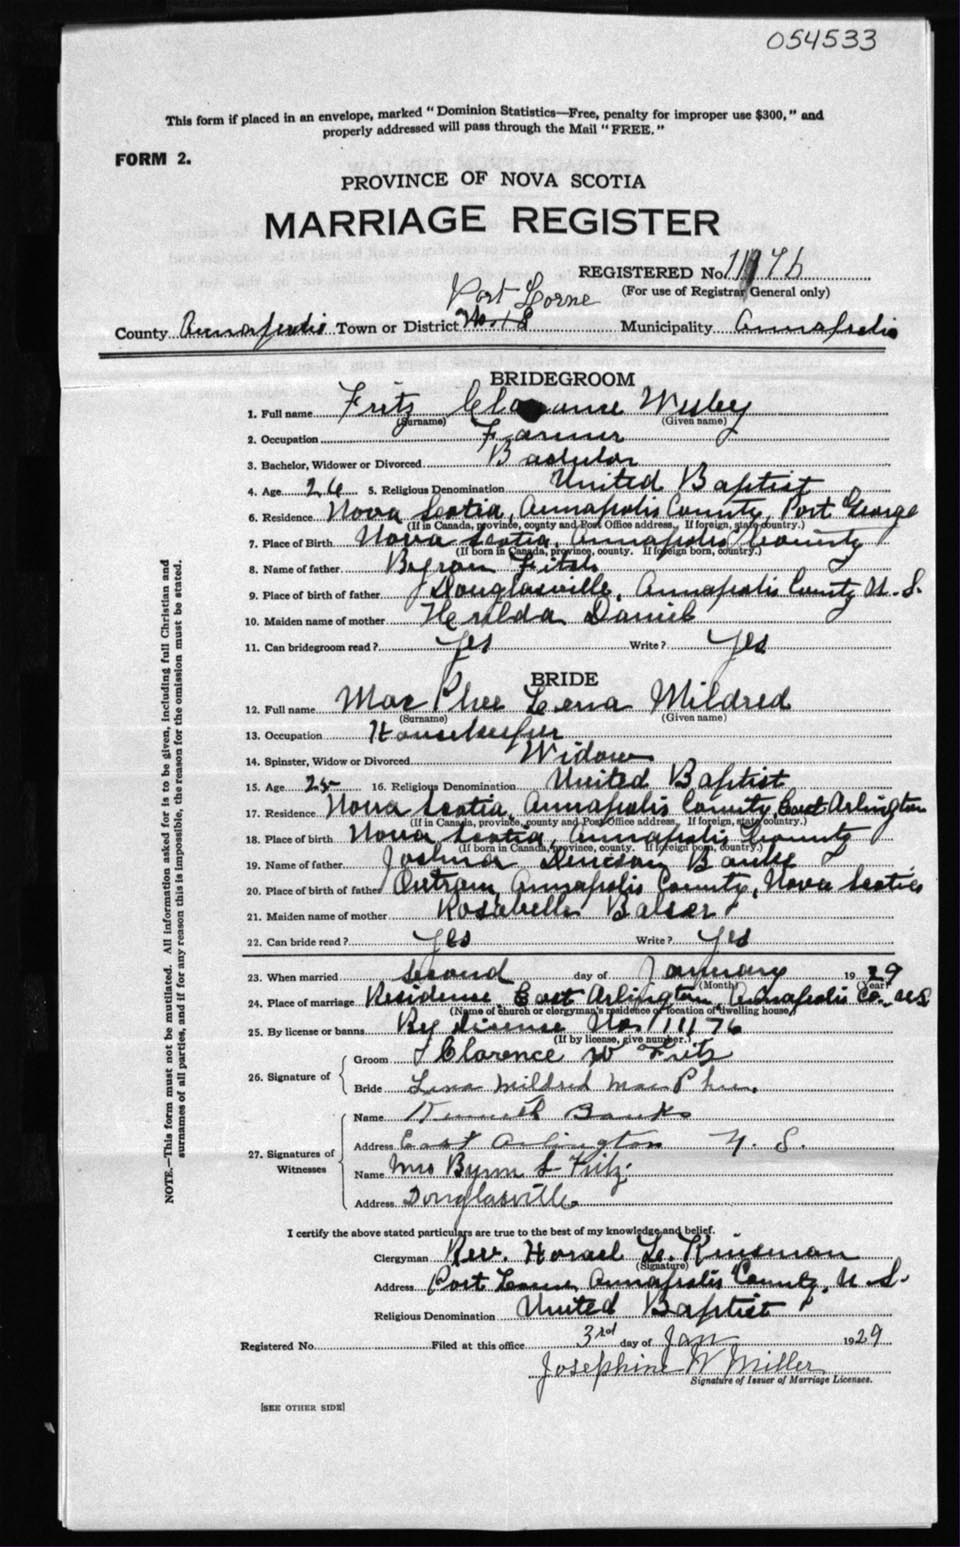 054533
This form if placed in an envelope, marked "Dominion Statistics—Free, penalty for improper use $300," and
properly addressed will pass through the Mail "FREE."
FORM 2.
PROVINCE OF NOVA SCOTIA
MARRIAGE REGISTER
REGISTERED No.
(For use of Registrar General only)
Port Lorne
County Annapolis Town or District No. 18 Municipality Annapolis
BRIDEGROOM
1. Full name Fritz Clarence Wesley
(Surname) (Given name)
2. Occupation Farmer
3. Bachelor, Widower or Divorced Bachelor
4. Age 26 5. Religious Denomination United Baptist
6. Residence Nova Scotia, Annapolis County, Port George
(If in Canada, province, county and Post Office address. If foreign, state country.)
7. Place of Birth Nova Scotia, Annapolis County
(If born in Canada, province, county. If foreign born, country.)
8. Name of father Byron Fritz
9. Place of birth of father Douglasville, Annapolis County N. S.
10. Maiden name of mother Daniels
11. Can bridegroom read? Yes Write? Yes
BRIDE
12. Full name MacPhee Lena Mildred
(Surname) (Given name)
13. Occupation Housekeeper
14. Spinster, Widow or Divorced Widow
15. Age 25 16. Religious Denomination United Baptist
17. Residence Nova Scotia, Annapolis County, East Arlington
(If in Canada, province, county and Post Office address. If foreign, state country.)
18. Place of birth Nova Scotia, Annapolis County
(If born in Canada, province, county. If foreign born, country.)
19. Name of father Joshua Denison Banks
20. Place of birth of father Outram, Annapolis County, Nova Scotia
21. Maiden name of mother Rosabelle Balser
22. Can bride read? Yes Write? Yes
23. When married Second day of January 1929
(Month) (Year)
24. Place of marriage Residence, East Arlington, Annapolis Co., N.S.
(Name of church or clergyman's residence or location of dwelling house.)
25. By license or banns By License No. 11176
(If by license, give number.)
26. Signature of
Groom Clarence W Fritz
Bride Lena Mildred MacPhee.
27. Signatures of Witnesses
Name Kenneth Banks
Address East Arlington N. S.
Name Mrs Byron L Fritz.
Address Douglasville
I certify the above stated particulars are true to the best of my knowledge and belief.
Clergyman Rev. Horace L. Kinsman
(Signature)
Address Port Lorne, Annapolis County, N. S.
Religious Denomination United Baptist
Registered No. Filed at this office 3rd day of Jan 1929
Josephine W Miller
Signature of Issuer of Marriage Licenses.
[SEE OTHER SIDE]
NOTE.—This form must not be mutilated. All information asked for is to be given, including full Christian and
surnames of all parties, and if for any reason this is impossible, the reason for the omission must be stated.